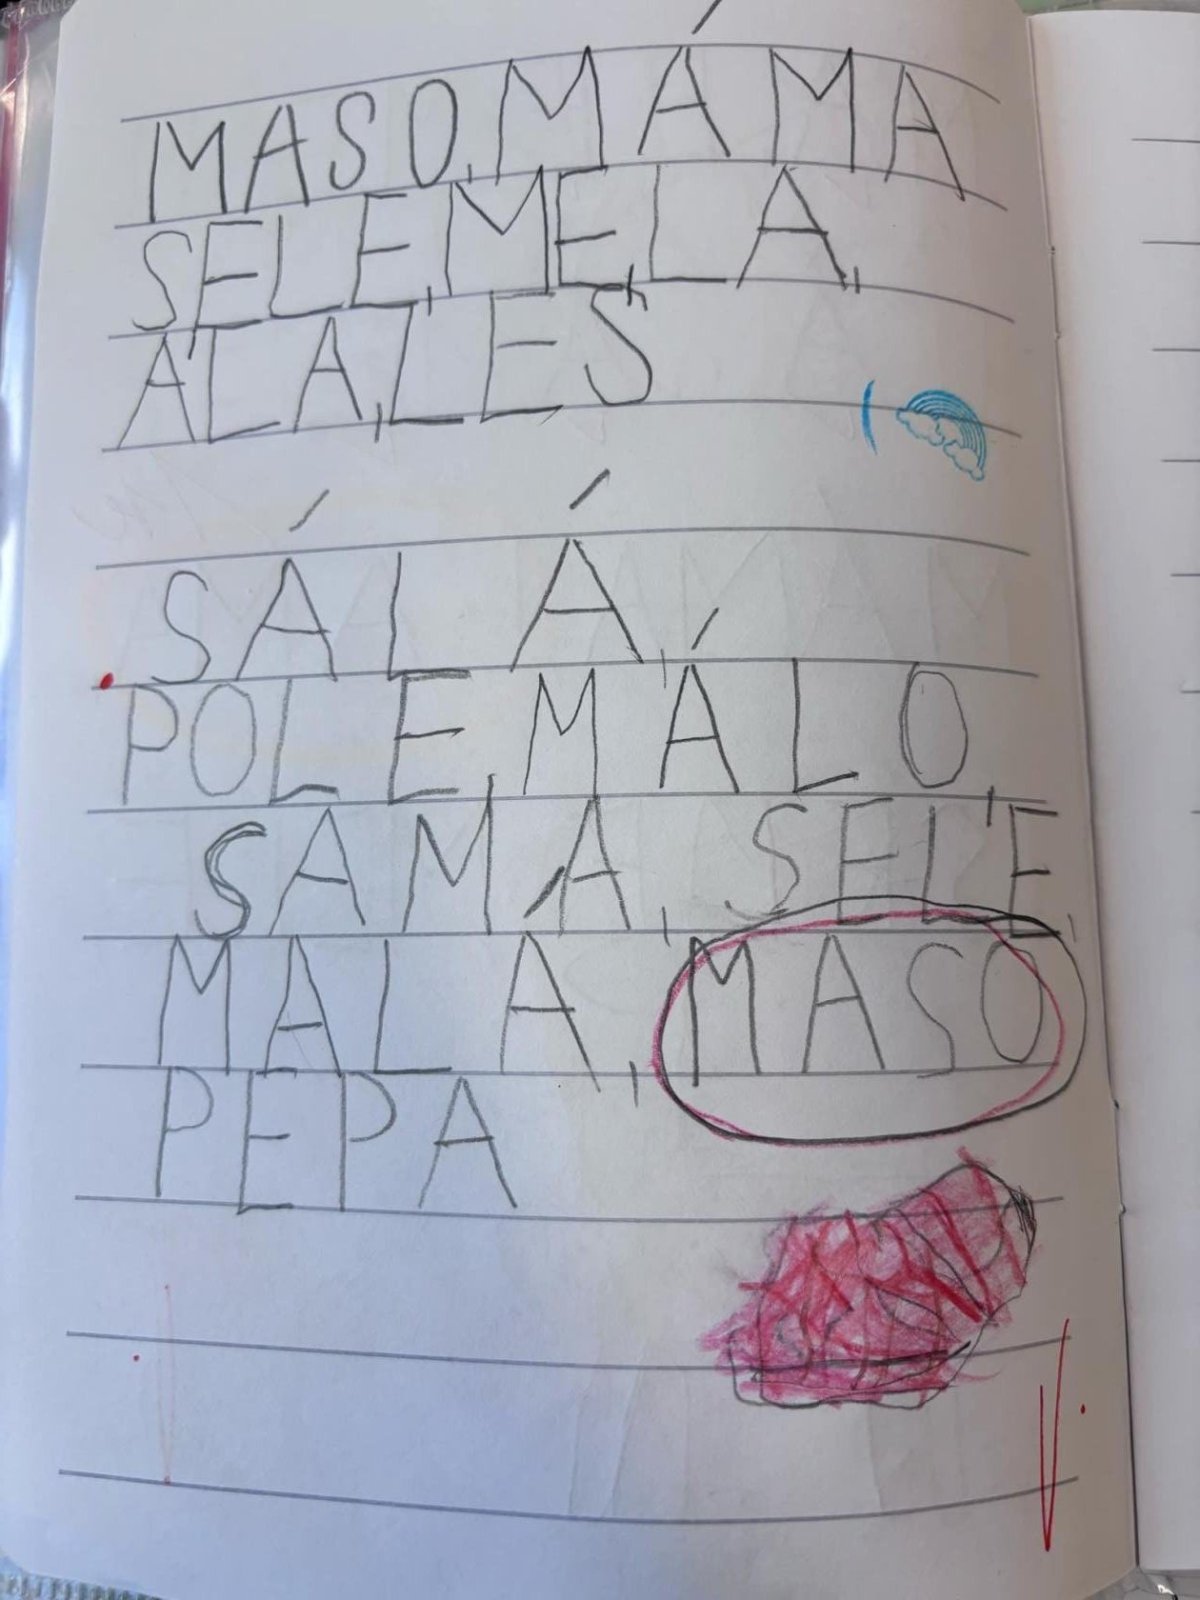 MASO, MÁMA
SELE, MELE, LA,
ALA, LES
SÁLÁ,
POLE, MÁLO,
SAMA, SELE,
MALA, MASO
PEPA